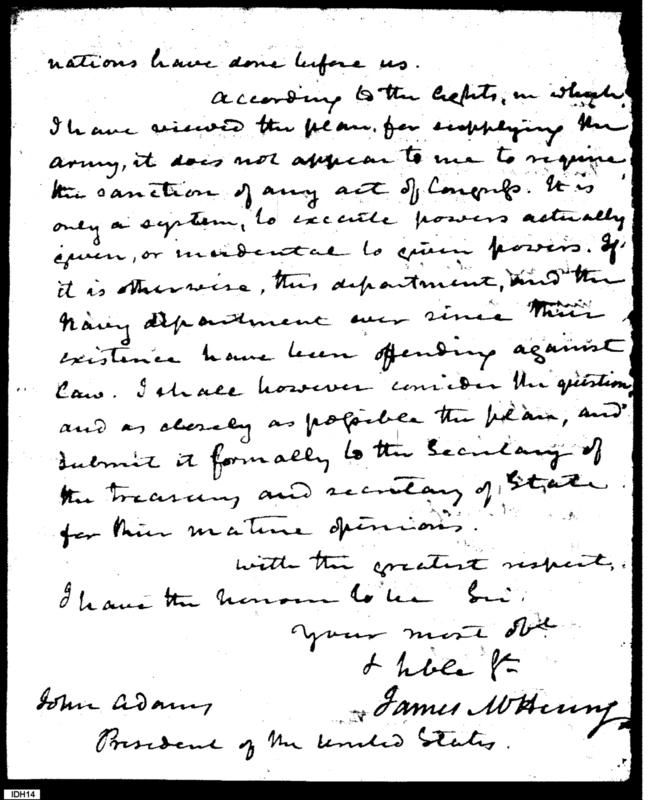 nations have done before us.
According to the lights, in which
I have viewed the plan for supplying the
army, it does not appear to me to require
the sanction of any act of Congress. It is
only a system, to execute powers actually
given, or incidental to given powers. If
it is otherwise, this department, and the
Navy department ever since their
existence have been offending against
law. I shall however consider the question
and as closely as possible the plan, and
submit it formally to the Secretary of
the treasury and secretary of State
for their mature opinions.
with the greatest respect,
I have the honour to be Sir.
Your most obt
& hble
James McHenry
John Adams
President of the United States.
IDH14